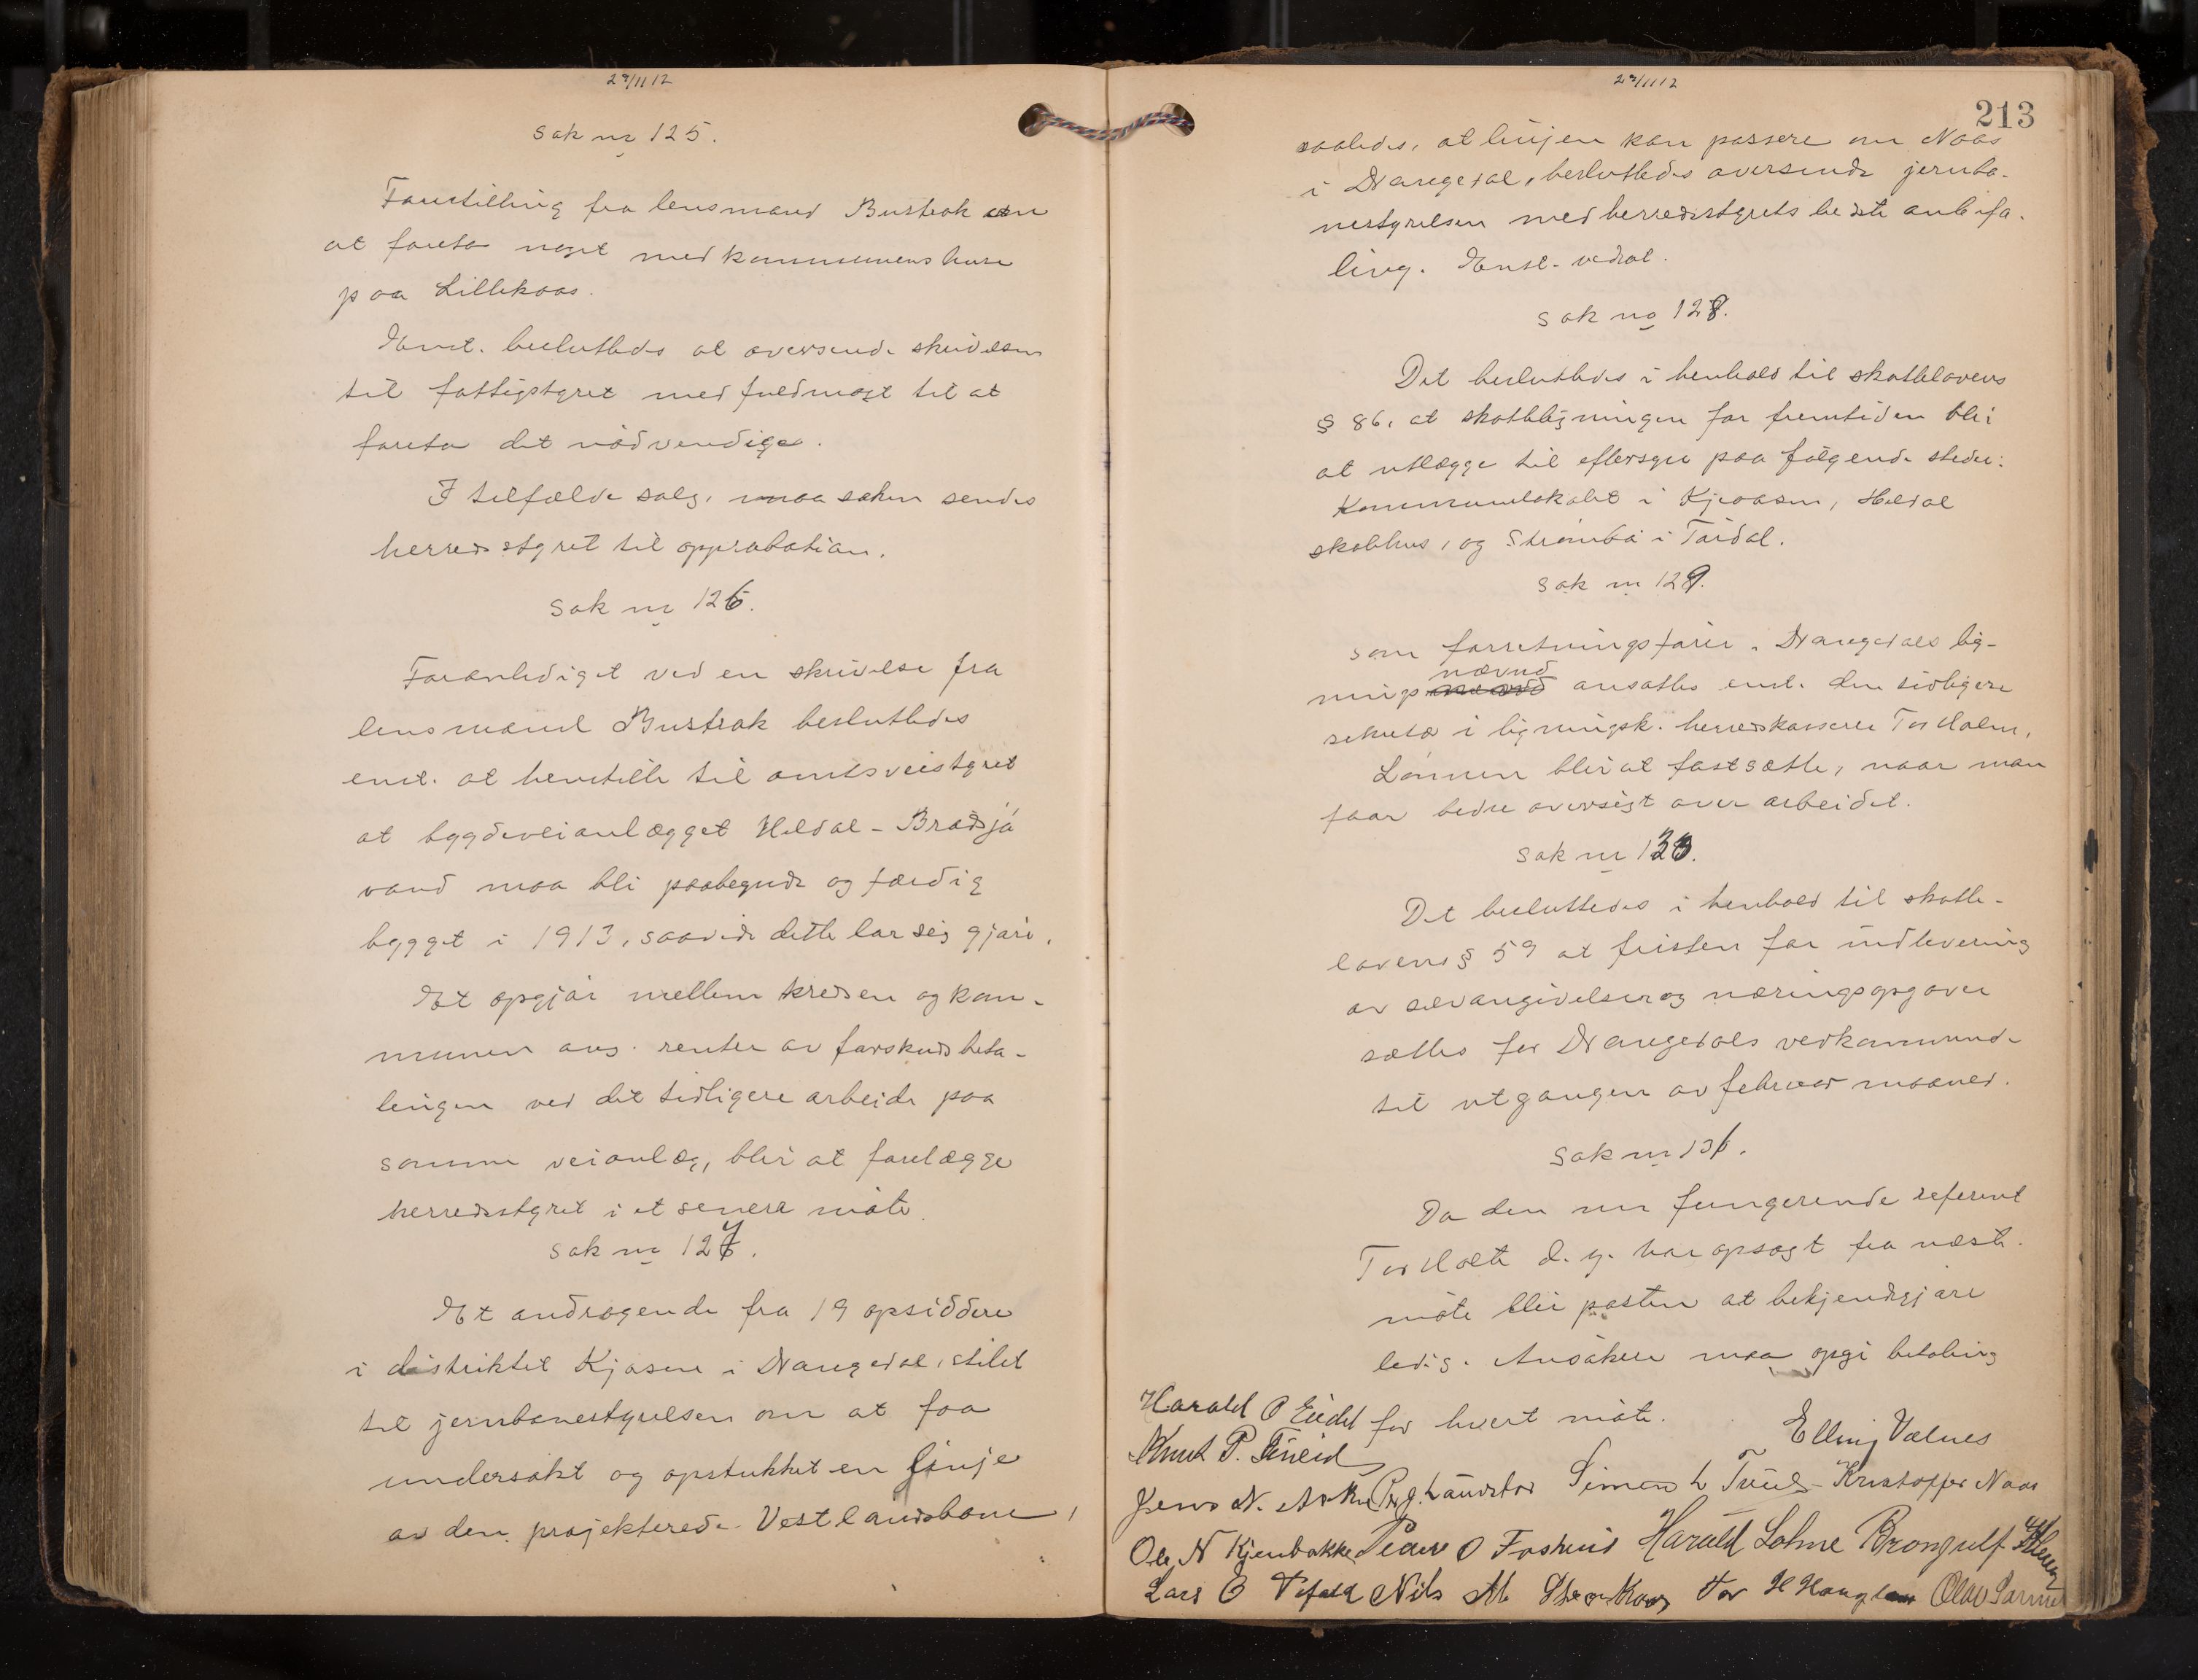 29/11 12
Sak nr 125.
Forestilling fra lensmand Bustrak om
at foreta noget med kommunens huse
paa Lillekaas.
Enst. besluttedes at oversende skrivelsen
til fattigstyret med fuldmagt til at
foreta det nödvendige.
I tilfælde salg, maa saken sendes
herredsstyret til opprobation.
Sak nr 126.
Foranlediget ved en skrivelse fra
lensmand Bustrak besluttedes
enst. at henstille til amtsveistyret
at bygdeveianlægget Heldal - Brødsjö
vand maa bli paabegyndt og færdig
bygget i 1913, saavidt dette lar sig gjöre.
Et opgjör mellem kredsen og kom-
munen ang. renter av forskudsbeta-
lingen ved det tidligere arbeide paa
samme veianlæg, blir at forelægge
herredsstyret i et senere möte.
Sak nr 127.
Et andragende fra 19 opsiddere
i distriktet Kjosen i Drangedal, stilet
til jernbanestyrelsen om at faa
undersökt og opstukket en linje
av den projekterede Vestlandsbane,
29/11 12
213
saaledes, at linjen kan passere om Naas
i Drangedal, besluttedes oversendt jernba-
nestyrelsen med herredsstyrets bedste anbefa-
ling. Enst. vedtat.
Sak no 128.
Det besluttedes i henhold til skattelovens
§ 86, at skatteligningen for fremtiden blir
at utlægge til eftersyn paa følgende steder:
Kommunelokalet i Kjeaasen, Heldal
skolehus, og Strömbö i Tördal.
Sak nr 129.
Som forretningsförer i Drangedals lig-
nings nævnd ansattes enst. den tidligere
sekretær i ligningsk. herredskasserer Tor Holm.
Lönnen blir at fastsætte, naar man
faar bedre oversigt over arbeidet.
Sak nr 130.
Det besluttedes i henhold til skatte-
lovens § 59 at fristen for indlevering
av selvangivelser og næringsopgaver
sættes for Drangedals vedkommende
til utgangen av februar maaned.
Sak nr 131.
Da den nu fungerende referent
Tor Holte d. y. har opsagt fra næste
möte blir posten at bekjendtgjöre
ledig. Ansökere maa opgi betaling
for hvert möte.
Harald O Eidet Elling Vælnes
Knut P. Tineid
Jens N. Simen L Kristoffer Naas
Ole N Kjenbakke Peder O Foshus Harald Lohne Brongulf
Lars O Nils M Tor H Olav